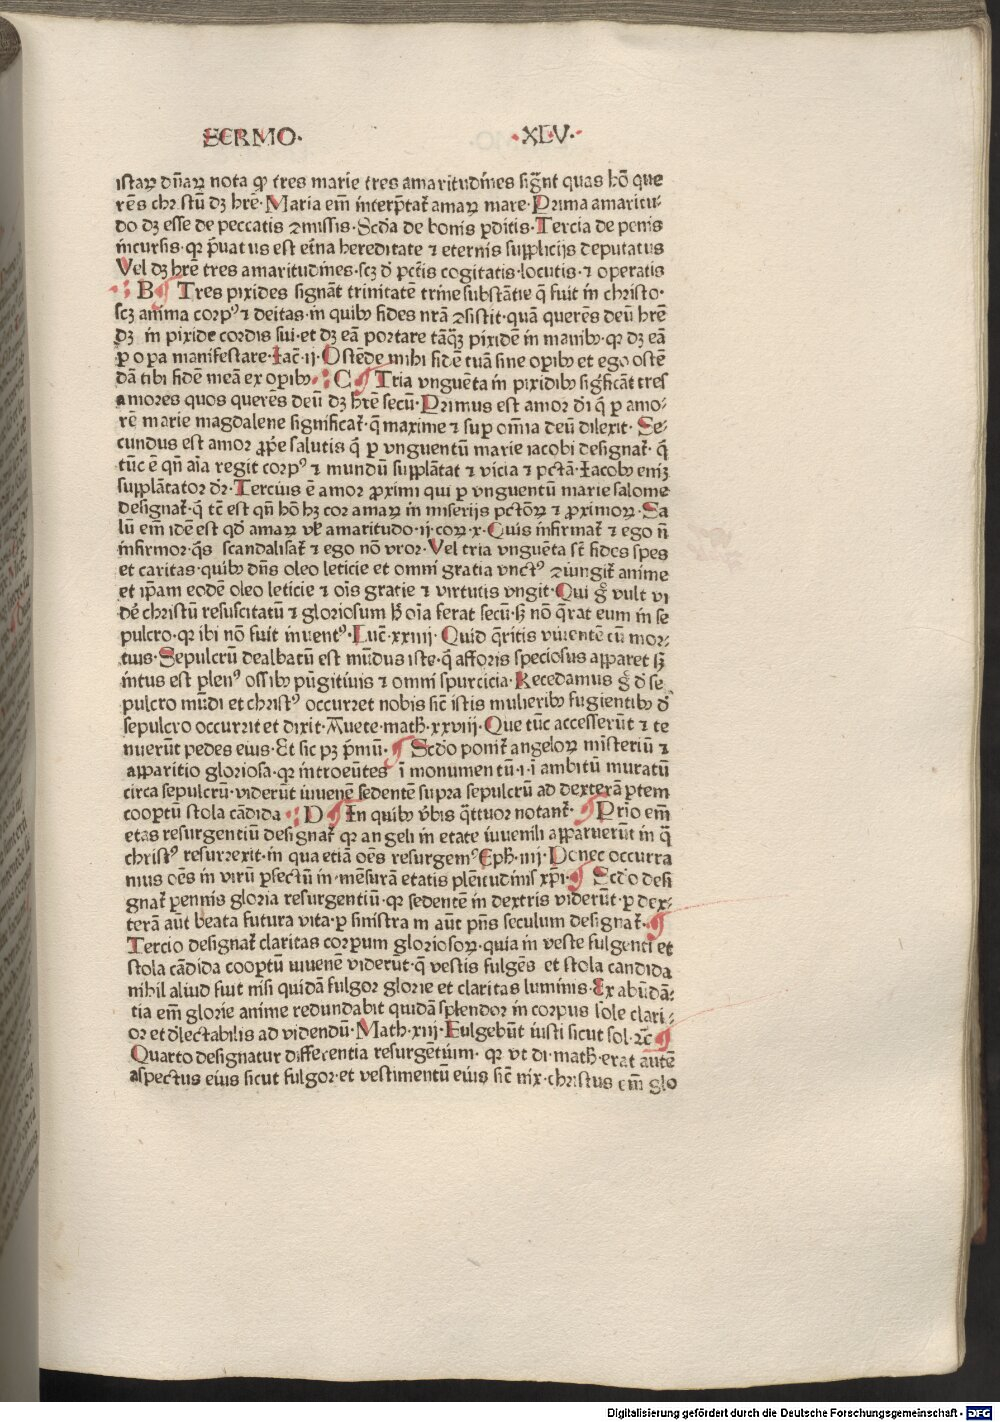 SERMO· ·XLV·
istaꝝ dn̄aꝝ nota ꝙ tres marie tres amaritudines sigñt quas hō que
rēs christū dꝫ hr̄e· Maria em̄ interp̄tat᷑ amaꝝ mare· Prima amaritu-
do dꝫ esse de peccatis ꝯmissis· Scd̄a de bonis ꝑditis· Tercia de penis
incursis· qꝛ p̄uatus est et̄na hereditate ⁊ eternis supplicijs deputatus
Vel dꝫ hr̄e tres amaritudines· scꝫ d̄ pctīs cogitatis· locutis· ⁊ operatis
B Tres pixides signāt trinitatē trine substātie q̄ fuit in christo·
scꝫ anima corpꝰ ⁊ deitas· in quibꝫ fides nr̄a ꝯsistit· quā querēs deū hr̄e
dꝫ in pixide cordis sui· et dꝫ eā portare tāqꝫ pixidē in manibꝫ· qꝛ dꝫ eā
ꝑ oꝑa manifestare· Iac̄· ij· Ostēde mihi fidē tuā sine oꝑibꝫ et ego ostē
dā tibi fidē meā ex oꝑibꝫ· C Tria vnguēta in pixidibꝫ sig̃ficāt tres
amores quos querēs deū dꝫ hr̄e secū· Primus est amor dei q̄ ꝑ amo-
rē marie magdalene significat᷑· q̄ maxime ⁊ suꝑ om̄ia deū dilexit· Se-
cundus est amor ꝓpe salutis q̄ ꝑ vnguentū marie iacobi designat᷑· q̄
tūc ē qn̄ aīa regit corpꝰ ⁊ mundū supplātat ⁊ vicia ⁊ pctā· Iacobꝫ enīꝫ
supplātator dr̄· Tercius ē amor ꝓximi qui ꝑ vnguentū marie salome
designat᷑· q̄ tc̄ est qn̄ hō hꝫ cor amaꝝ in miserijs pctōꝝ ⁊ ꝓximoꝝ· Sa
lū em̄ idē est qd̄ amaꝝ vl᷑ amaritudo· ij· cor· x· Quis infirmat᷑ ⁊ ego n̄
infirmor· q̄s scandalisat᷑ ⁊ ego nō vror· Vel tria vnguēta sc̄ fides spes
et caritas· quibꝫ dn̄s oleo leticie et omni gratia vnctꝰ ꝯiungit᷑ anime
et ip̄am eodē oleo leticie ⁊ oīs gratie ⁊ virtutis vngit· Qui g̊ vult vi
dē christū resuscitatū ⁊ gloriosum h̄ oīa ferat secū· sꝫ nō q̄rat eum in se
pulcro· qꝛ ibi nō fuit inuentꝰ· Luc̄· xxiiij· Quid q̄ritis viuentē cū mor-
tuis· Sepulcrū dealbatū est mūdus iste· q̄ afforis speciosus apparet sꝫ
intus est plenꝰ ossibꝫ pūgitiuis ⁊ omni spurcicia· Recedamus g̊ d̄ se
pulcro mūdi et christꝰ occurret nobis sic̄ istis mulieribꝫ fugientibꝫ d̄
sepulcro occurrit et dixit· Auete· math̄· xxviij· Que tūc accesserūt ⁊ te
nuerūt pedes eius· Et sic pꝫ p̄mū· Scd̄o ponit᷑ angeloꝝ misteriū ⁊
apparitio gloriosa· qꝛ introeūtes ī monumentū· i· ī ambitū muratū
circa sepulcrū· viderūt iuuenē sedentē supra sepulcrū ad dexterā ꝑtem
cooptū stola cādida D In quibꝫ v̄bis q̄ttuor notant᷑· Prīo em̄
etas resurgentiū designat᷑ qꝛ angeli in etate iuuenili apparuerūt in q̄
christꝰ resurrexit· in qua etiā oēs resurgemꝰ Eph̄· iiij· Donec occurra
mus oēs in virū ꝑfectū in mēsurā etatis plēitudinis xp̄i· Scd̄o desi
gnat᷑ ꝑennis gloria resurgentiū· qꝛ sedentē in dextris viderūt· ꝑ dex-
terā aūt beata futura vita· ꝑ sinistram aūt p̄ns seculum designat᷑·
Tercio designat᷑ claritas corpꝝum gloriosoꝝ· quia in veste fulgenti et
stola cādida cooptū iuuenē viderūt· q̄ vestis fulgēs et stola candida
nihil aliud fuit nisi quidā fulgor glorie et claritas luminis· Ex abūdā-
tia em̄ glorie anime redundabit quidā splendor in corpus sole clari-
or et d̄lectabilis ad videndū· Math· xiij· Fulgebūt iusti sicut sol· ⁊c̄
Quarto designatur differentia resurgētium· qꝛ vt di· math̄· erat autē
aspectus eius sicut fulgor· et vestimentū eius sic̄ nix· christus em̄ glo
Digitalisierung gefördert durch die Deutsche Forschungsgemeinschaft - DFG